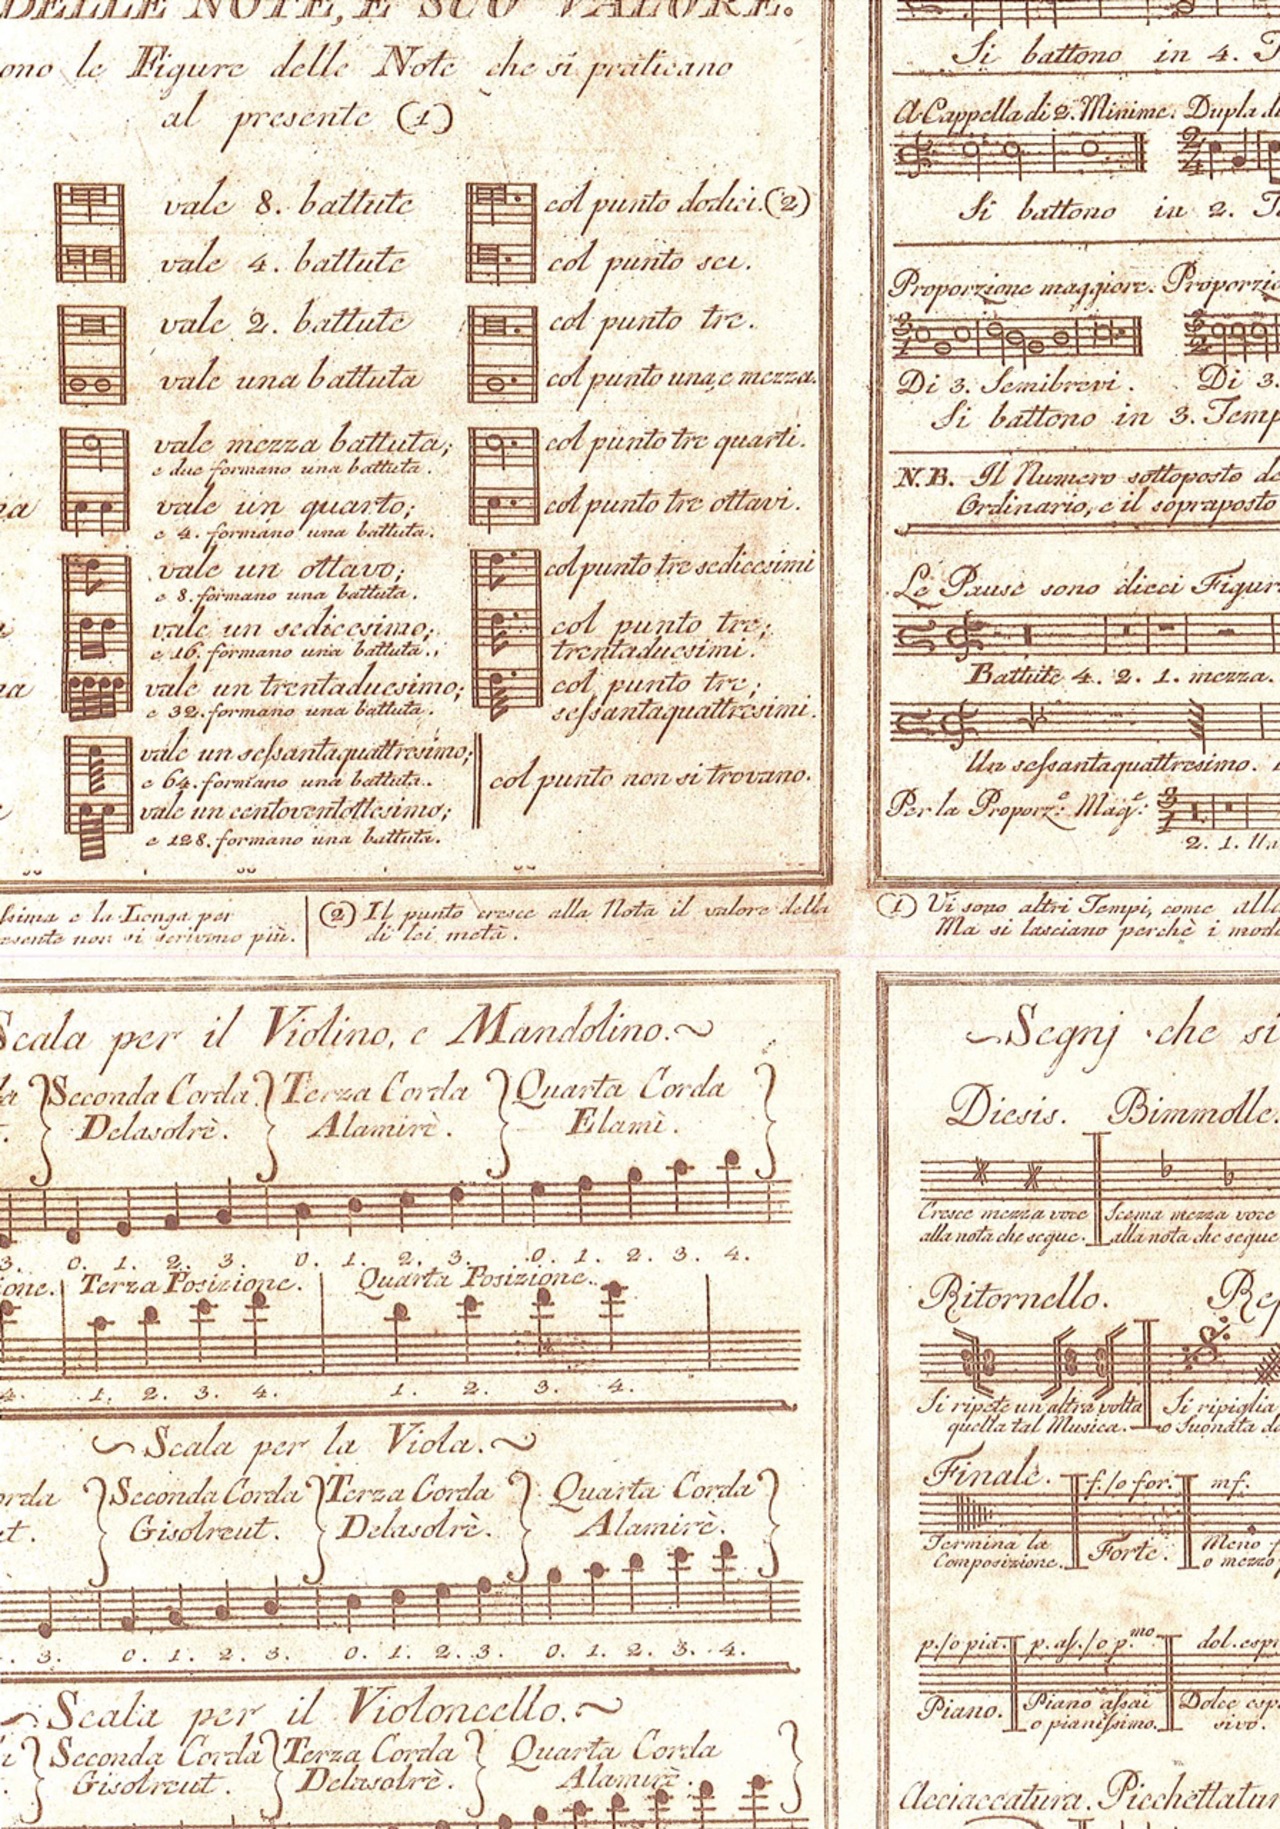 DELLE NOTE, E SUO VALORE.
ono le Figure delle Note che si praticano
al presente (1)
vale 8. battute
col punto dodici. (2)
vale 4. battute
col punto sei.
vale 2. battute
col punto tre.
vale una battuta
col punto una, e mezza.
vale mezza battuta;
e due formano una battuta.
col punto tre quarti.
vale un quarto;
e 4. formano una battuta.
col punto tre ottavi.
vale un ottavo;
e 8. formano una battuta.
col punto tre sedicesimi
vale un sedicesimo;
e 16. formano una battuta.
col punto tre;
trentaduesimi.
vale un trentaduesimo;
e 32. formano una battuta.
col punto tre;
sessantaquattresimi.
vale un sessantaquattresimo;
e 64. formano una battuta.
vale un centoventottesimo;
e 128. formano una battuta.
col punto non si trovano.
ssima e la Longa per
esente non si scrivono più.
(2) Il punto cresce alla Nota il valore della
di lei metà.
Si battono in 4. T
A Cappella di 2. Minime. Dupla di
2 4
Si battono in 2. T
Proporzione maggiore. Proporzio
3 1 3 2
Di 3. Semibrevi. Di 3.
Si battono in 3. Temp
N.B. Il Numero sottoposto de
Ordinario, e il sopraposto
Le Pause sono dieci Figur
Battute 4. 2. 1. mezza.
Un sessantaquattresimo.
Per la Proporz.e Mag.e:
3 1
2. 1. Un
(1) Vi sono altri Tempi, come alla
Ma si lasciano perchè i mod
Scala per il Violino, e Mandolino.
Seconda Corda
Delasolrè.
Terza Corda
Alamirè.
Quarta Corda
Elami.
3. 0. 1. 2. 3. 0. 1. 2. 3. 0. 1. 2. 3. 4.
ione. Terza Posizione. Quarta Posizione.
4. 1. 2. 3. 4. 1. 2. 3. 4.
Scala per la Viola.
orda
t.
Seconda Corda
Gisolreut.
Terza Corda
Delasolrè.
Quarta Corda
Alamirè.
3. 0. 1. 2. 3. 0. 1. 2. 3. 0. 1. 2. 3. 4.
Scala per il Violoncello.
Seconda Corda
Gisolreut.
Terza Corda
Delasolrè.
Quarta Corda
Alamirè.
Segnj che si
Diesis. Bimmolle.
Cresce mezza voce
alla nota che segue.
Scema mezza voce
alla nota che segue
Ritornello. Rep
Si ripete un'altra volta
quella tal Musica.
Si ripiglia
o Suonata da
Finale. f. / o for. mf.
Termina la
Composizione.
Forte.
Meno f
o mezzo
p. / o pia. p. as. / o p.mo dol. espr
Piano.
Piano assai
o pianissimo.
Dolce esp
sivo.
Acciaccatura. Picchettatur